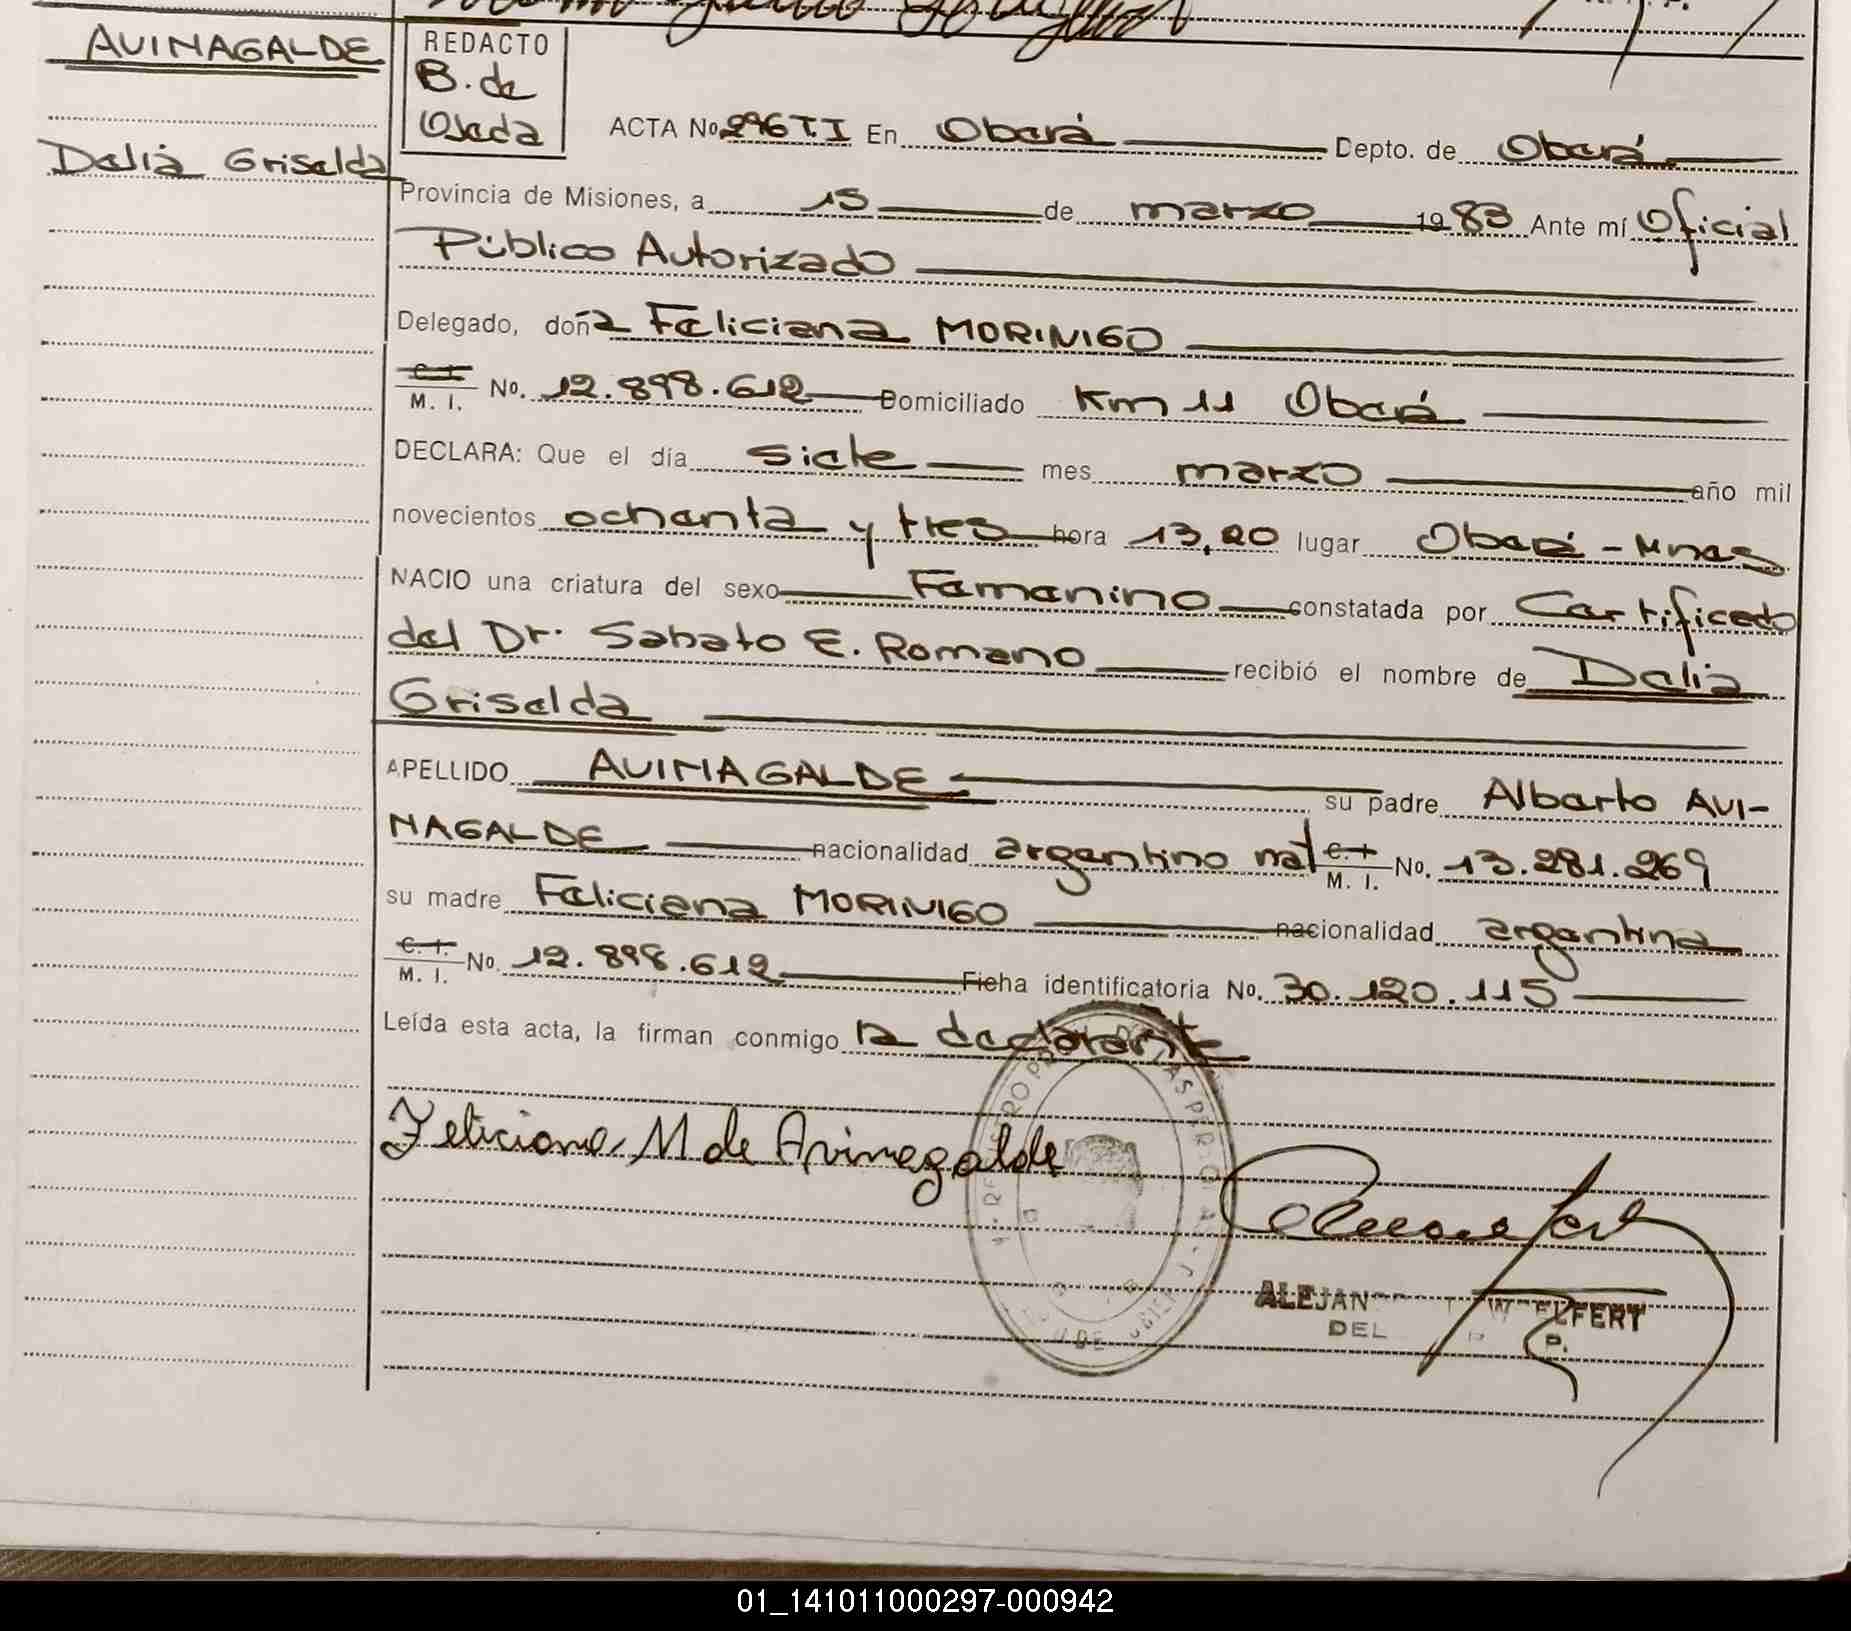 AVINAGALDE
Delia Griselda
REDACTO
B. de
Ojeda
ACTA No. 296 T.I En Oberá Depto. de Oberá
Provincia de Misiones, a 15 de marzo 1983 Ante mí Oficial
Público Autorizado
Delegado, doña Feliciana MORINIGO
C. I. M. I. No. 12.898.612 Domiciliado Km 11 Oberá
DECLARA: Que el día siete mes marzo año mil
novecientos ochenta y tres hora 13,20 lugar Oberá - Mnes
NACIO una criatura del sexo Femenino constatada por Certificado
del Dr. Sabato E. Romano recibió el nombre de Delia
Griselda
APELLIDO AVINAGALDE su padre Alberto AVI-
NAGALDE nacionalidad argentino nat C. I. M. I. No. 13.281.269
su madre Feliciana MORINIGO nacionalidad argentina
C. I. M. I. No. 12.898.612 Ficha identificatoria No. 30.120.115
Leída esta acta, la firman conmigo la declarante
Feliciana M de Avinagalde
ALEJAN W ELFERT
DEL P.
01_141011000297-000942